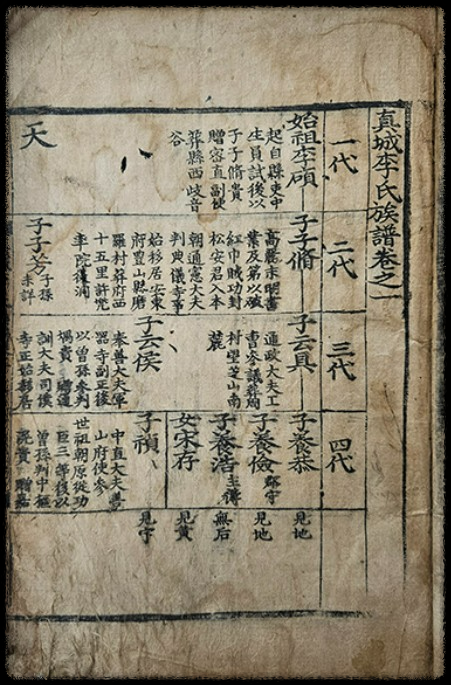 真城李氏族譜卷之一
一代
始祖李碩
起自縣吏中
生員試後以
子子脩貴
贈密直副使
葬縣西岐音
谷
天
二代
子子脩
高麗末明書
業及第以破
紅巾賊功封
松安君入本
朝通憲大夫
判典儀寺事
始移居安東
府豊山縣磨
羅村葬府西
十五里許兜
率院後洞
子子芳
子孫
未詳
三代
子云具
通政大夫工
曹參議葬周
村壁芝山南
麓
子云侯
奉善大夫軍
器寺副正後
以曾孫參判
堣貴 贈通
訓大夫司僕
寺正始移居
四代
子養恭
見地
子養儉
郡守
見地
子養浩
主簿
無后
女宋存
見黃
子禎
見宇
中直大夫善
山府使參
世祖朝原從功
臣三等後以
曾孫判中樞
滉貴 贈嘉